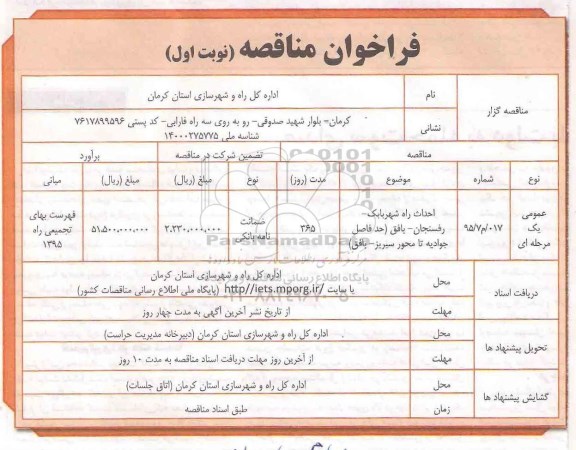 فراخوان مناقصه (نوبت اول)
مناقصه گزار
نام
اداره کل راه و شهرسازی استان کرمان
نشانی
کرمان= بلوار شهید صدوقی- رو به روی سه راه فارابی- کد پستی ۷۶۱۷۸۹۹۵۹۶
شناسه ملی ۱۴۰۰۰۲۷۵۷۷۵
مناقصه
تضمین شرکت در مناقصه
برآورد
نوع
شماره
موضوع
مدت (روز)
نوع
مبلغ (ریال)
مبلغ (ریال)
مبانی
عمومی
یک
مرحله ای
۹۵/م/۰۱۷
احداث راه شهربابک-
رفسنجان- بافق (حد فاصل
جوادیه تا محور سیریز- بافق)
۳۶۵
ضمانت
نامه بانکی
۲.۲۳۰.۰۰۰.۰۰۰
۵۱.۵۰۰.۰۰۰.۰۰۰
فهرست بهای
تجمیعی راه
۱۳۹۵
دریافت اسناد
محل
اداره کل راه و شهرسازی استان کرمان
یا سایت http://iets.mporg.ir/ (پایگاه ملی اطلاع رسانی مناقصات کشور)
مهلت
از تاریخ نشر آخرین آگهی به مدت چهار روز
تحویل پیشنهاد ها
محل
اداره کل راه و شهرسازی استان کرمان (دبیرخانه مدیریت حراست)
مهلت
از آخرین روز مهلت دریافت اسناد مناقصه به مدت ۱۰ روز
گشایش پیشنهاد ها
محل
اداره کل راه و شهرسازی استان کرمان (اتاق جلسات)
زمان
طبق اسناد مناقصه
ParsNamadData